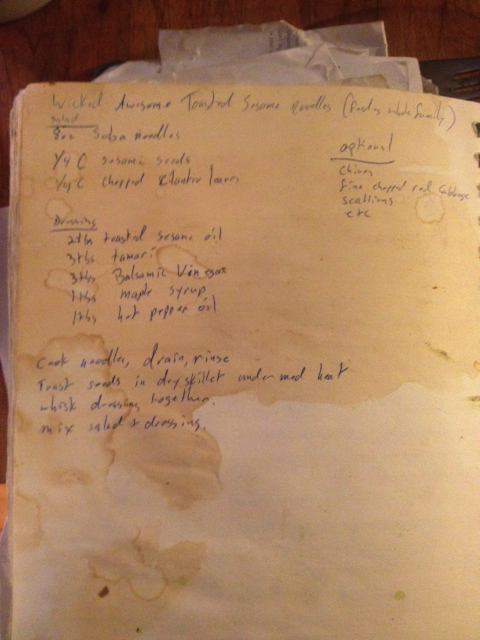 Wicked Awesome Toasted Sesame Noodles (feeds whole family)
Salad
8oz Soba Noodles
1/4 C sesame seeds
1/4 C chopped Cilantro leaves
optional
Chives
fine chopped red Cabbage
scallions
etc
Dressing
2tbs toasted sesame oil
3tbs tamari
3tbs Balsamic Vinegar
1tbs maple syrup
1tbs hot pepper oil
Cook noodles, drain, rinse
Toast seeds in dry skillet under med heat
whisk dressing together.
mix salad & dressing.